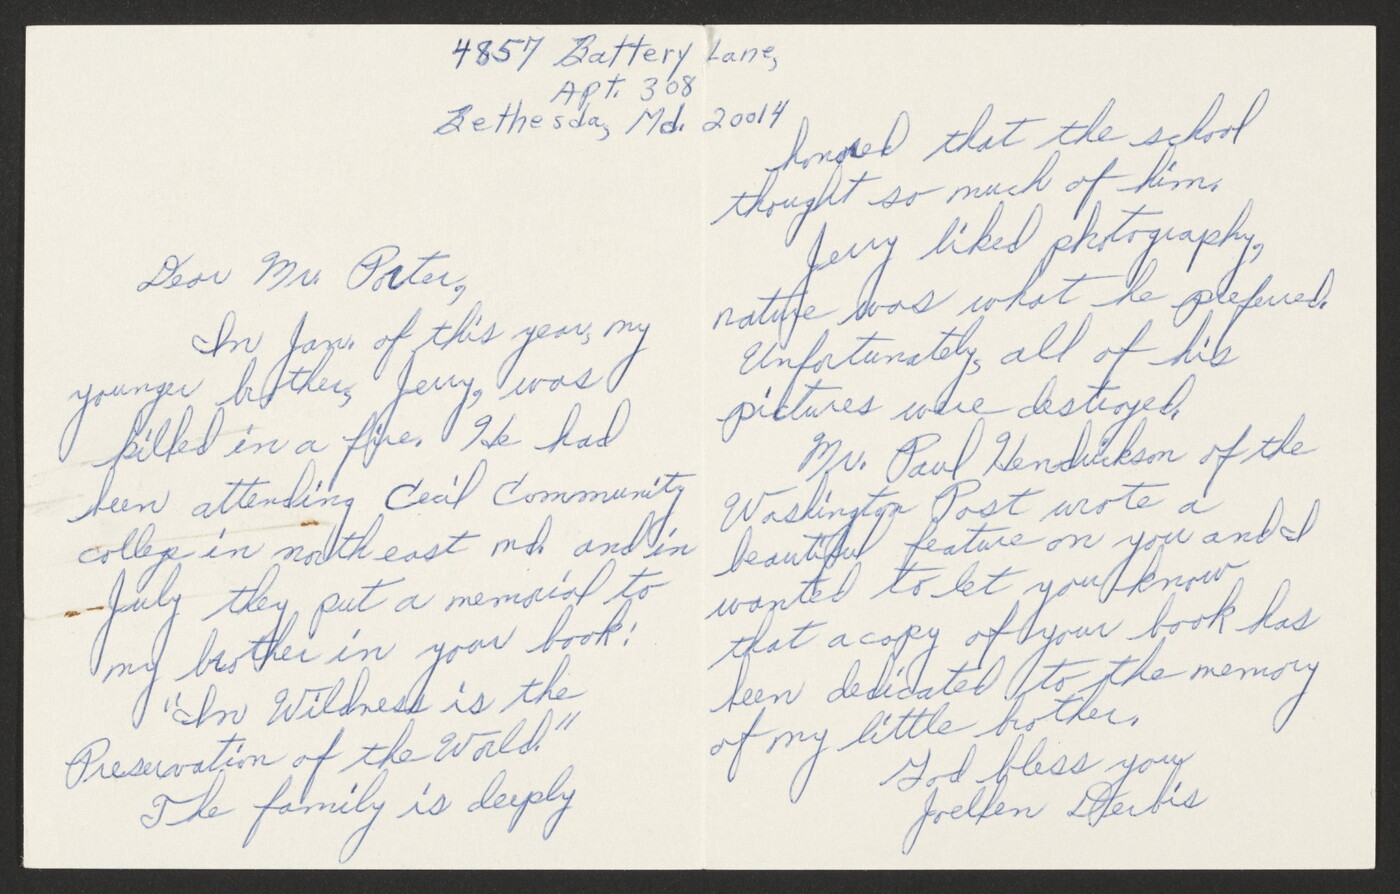 4857 Battery Lane,
Apt. 308
Bethesda, Md. 20014
Dear Mr. Porter,
In Jan. of this year, my
younger brother, Jerry, was
killed in a fire. He had
been attending Cecil Community
College in north east md. and in
July they put a memorial to
my brother in your book:
"In Wildness is the
Preservation of the World."
The family is deeply
honored that the school
thought so much of him.
Jerry liked photography,
nature was what he preferred.
Unfortunately, all of his
pictures were destroyed.
Mr. Paul Hendrickson of the
Washington Post wrote a
beautiful feature on you and I
wanted to let you know
that a copy of your book has
been dedicated to the memory
of my little brother.
God bless you
Joellen